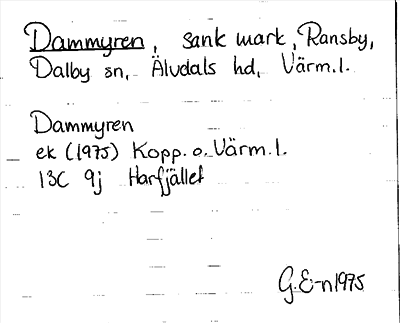 Dammyren, sank mark, Ransby,
Dalby sn, Älvdals hd, Värml.
Dammyren
ek (1975) Kopp. o. Värml.
13C 9j Harfjället
G.E-n 1975